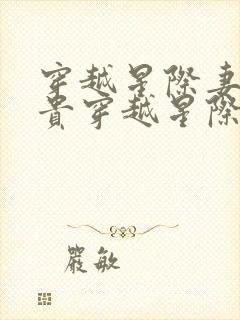 穿越星際妻
貴穿越星際
嚴敏